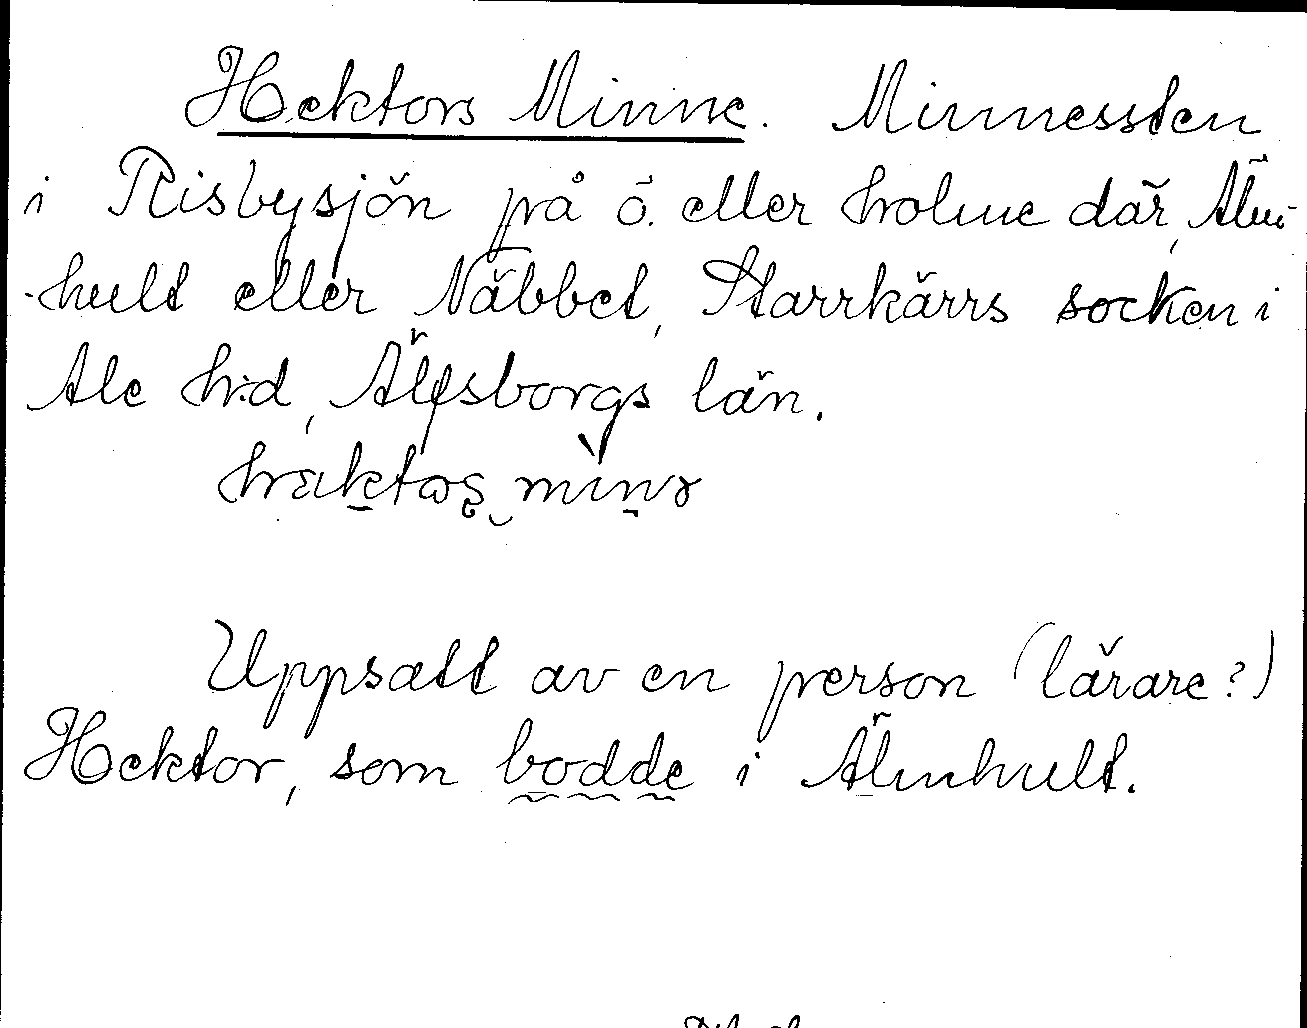 Hektors Minne. Minnessten
i Risbysjön på ö. eller holme där, Älm-
hult eller Näbbet, Starrkärrs socken i
Ale hrd, Älvsborgs län.
Uppsatt av en person (lärare?)
Hektor, som bodde i Älmhult.